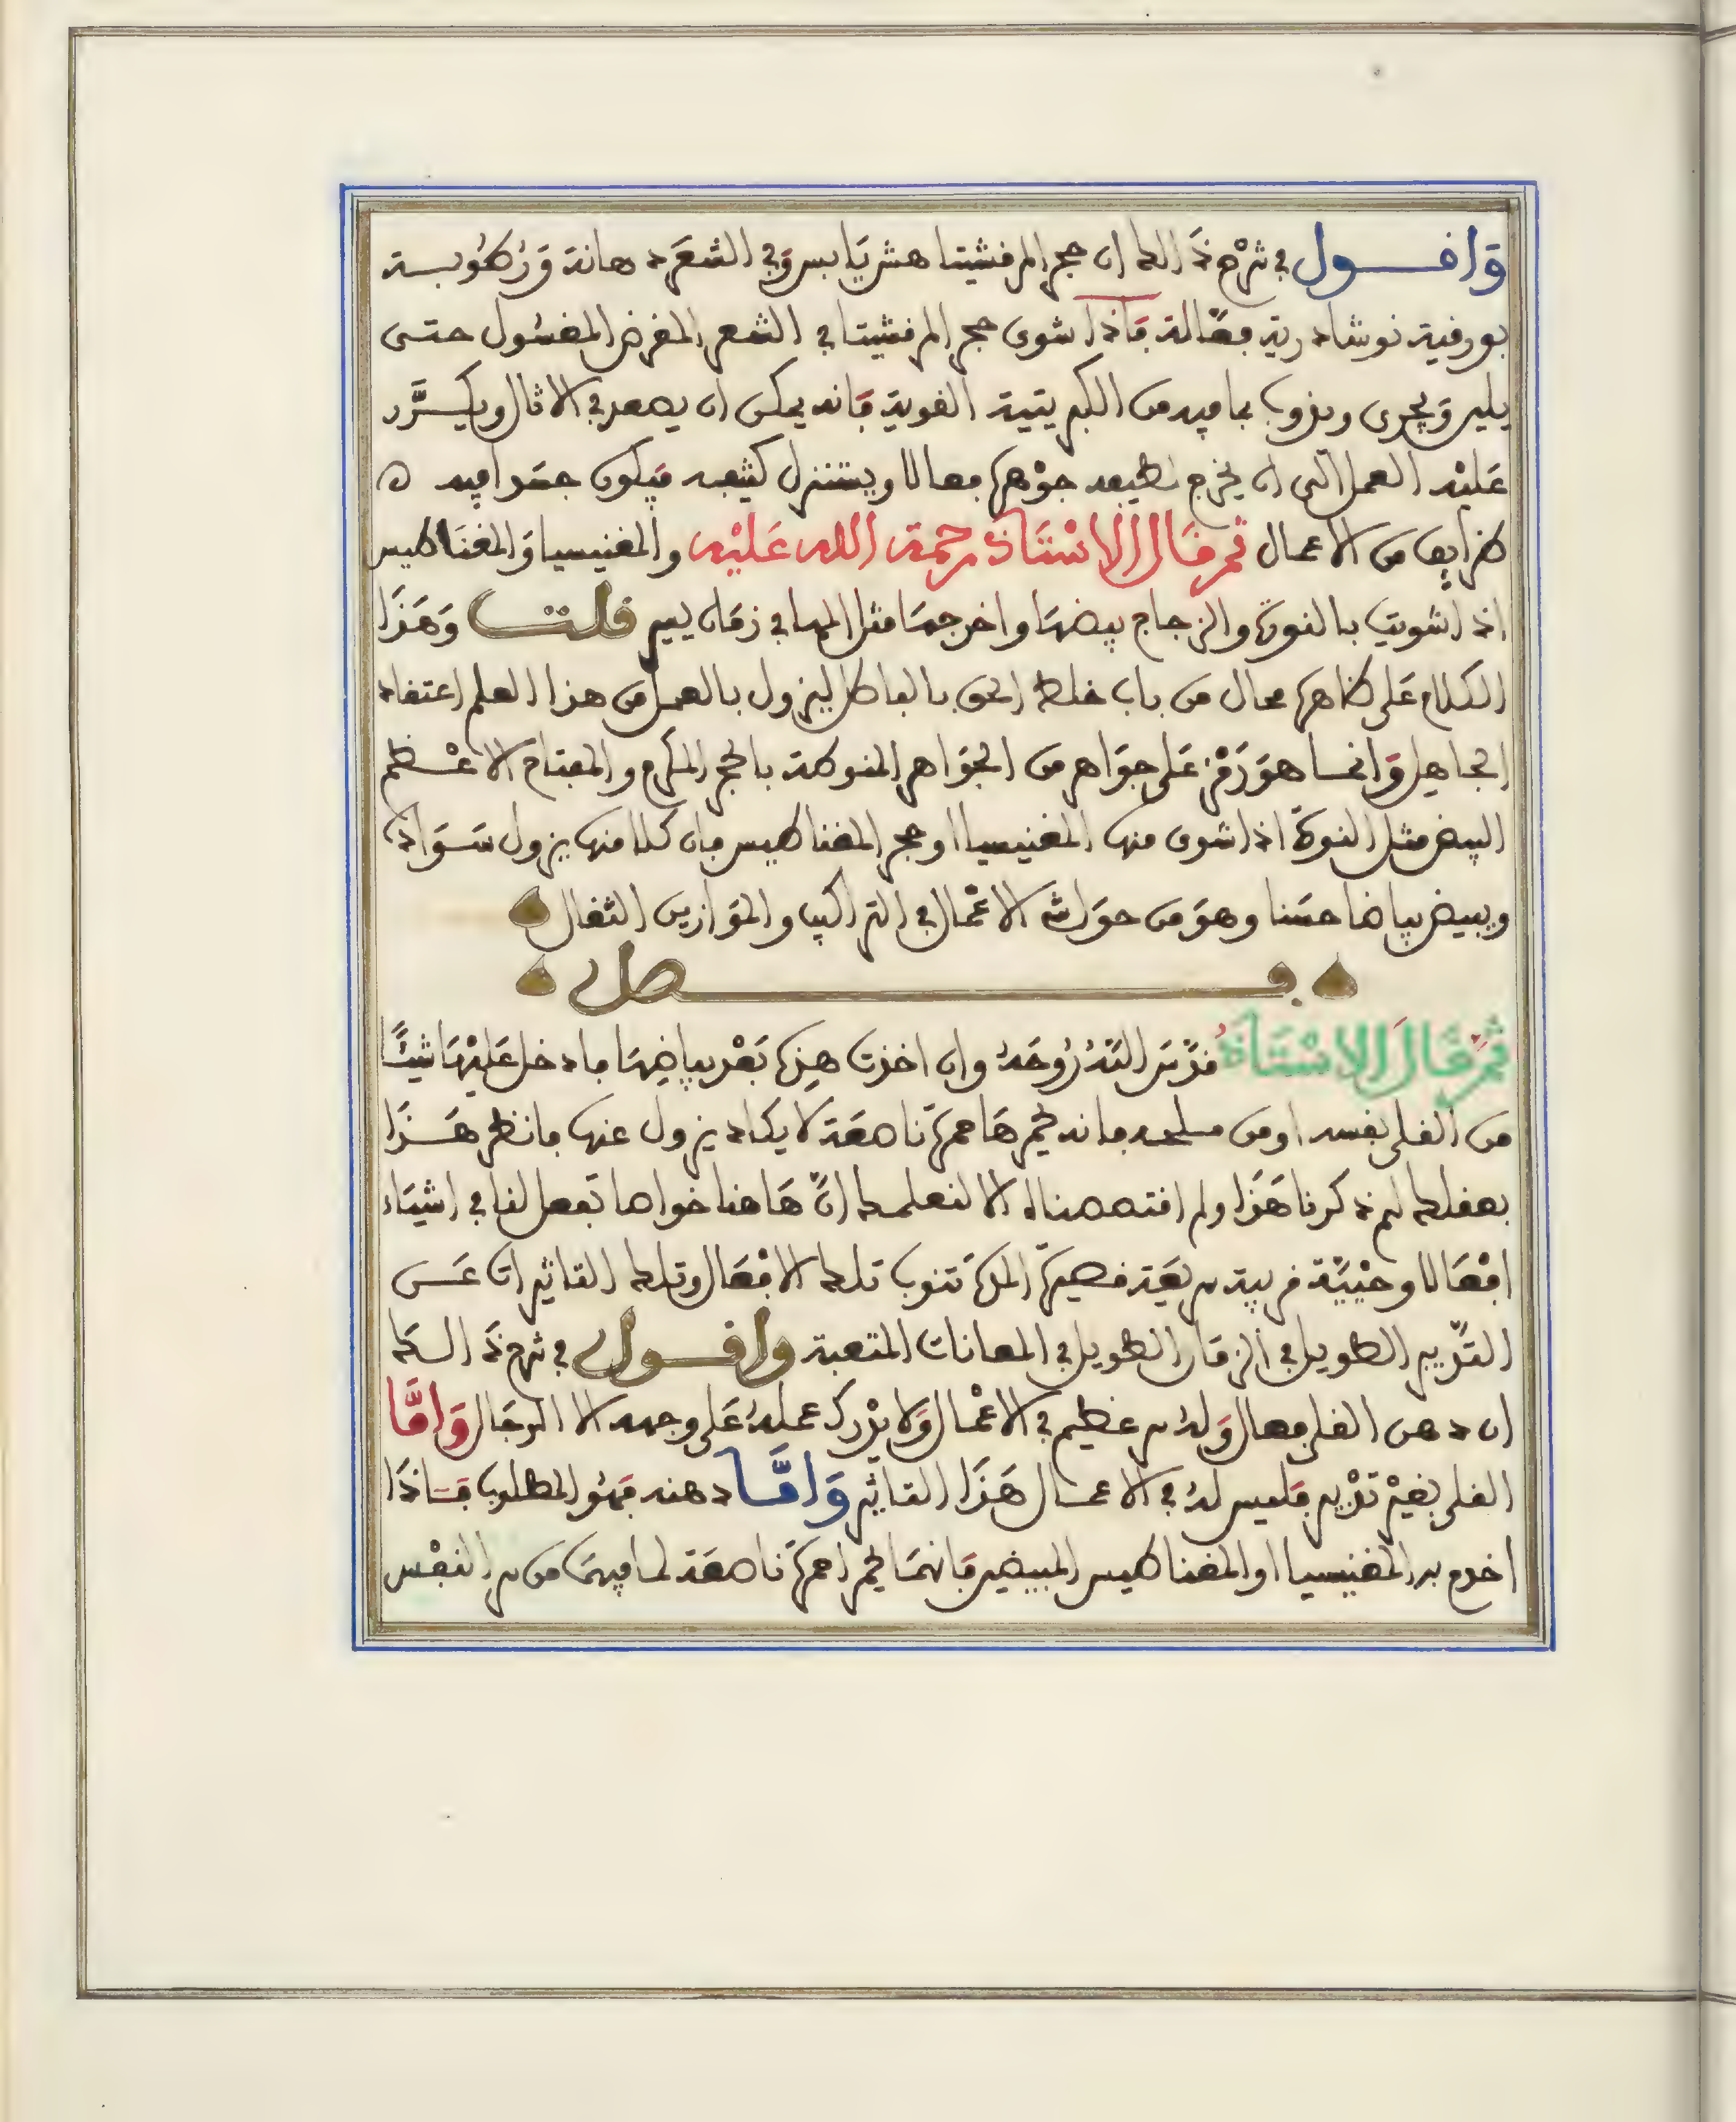 وَاقول في شرْح ذَالك ان حجر المرقشيتا هش يَابس وَفي الشعَر دهانة وَرُطوبـــة
بورقية نوشادرية فعّالة فَاذا شوى حجر المرقشيتا في الشعر المقرض المغسُول حتى
يلين وَيجرى ويذوب بما فيه من الكبريتية القوية فَانه يمكن ان يصعد في الاثال ويكــرَّر
عَليْه العمل الى ان يخرج لطيفه جوْهرا فعالا ويستنزل كثيفه فيَكون جسَدا فيه
طرايف من الاعمال ثم قال الاسْتَاذ رحمة الله عَليْه والمغنيسيا وَالمغنَاطيس
اذا شويت بالنورة والزجاج بيضهَا واخرجهَا مثل المها في زمَان يسير قلت وَهَذَا
الكلام عَلى ظاهره محال من باب خلط الحق بالباطل ليزول بالعمل من هذا العلم اعتقاد
الجاهل وَانما هوَ رَمْز عَلى جوَاهر من الجوَاهر المنوطة بالحجر المكرم والمفتاح الاعْــظم
ابيض مثل النورة اذا شوى منها المغنيسيا او حجر المغناطيس فان كلا منها يزول سَوَاده
ويبيض بياضا حسَنا وهوَ من حوَادث الاعْمال في التراكيب والموَازين الثقال
فــــــصل
ثم قَالَ الاسْتَاذُ قدّسَ اللّهُ رُوحَهُ وان اخذت هذِه بَعْد بياضِهَا فادخل عَليْهَا شيئًا
من القلى نفسه او من ملحه فانه يحمرهَا حمرَة ناصعَة لا يكاد يزول عنها فانظر هَــذَا
بعقلك لم ذكرنا هَذَا ولم اقتصصناه الا لنعلمك انّ هَاهنا خواصا تَفعل لنا في اشيَاء
افْعَالا وحْيِيّة قريبة سريعَة قصيرَة المدّة تنوب تلك الافْعَال وتلك التاثيرات عَــن
التدْبير الطويل في الزمَان الطويل في المعانات المتعبة واقــول في شرح ذَالــك
ان دهن القلى فعال وَلهُ سر عَظيم في الاعْمال وَلا يُدْرك عملهُ عَلى وجهه الا الرجَال وَامَّا
القلى بغيْر تدْبير فَليس لهُ في الاعمــال هَذَا التاثير وَامَّا دهنه فهُو المطلوب فَاذَا
اخدم به المغنيسيا او المغناطيس المبيضين فَانهمَا يحمرا حمرَة ناصعَة لما فيهمَا من سر النفْس